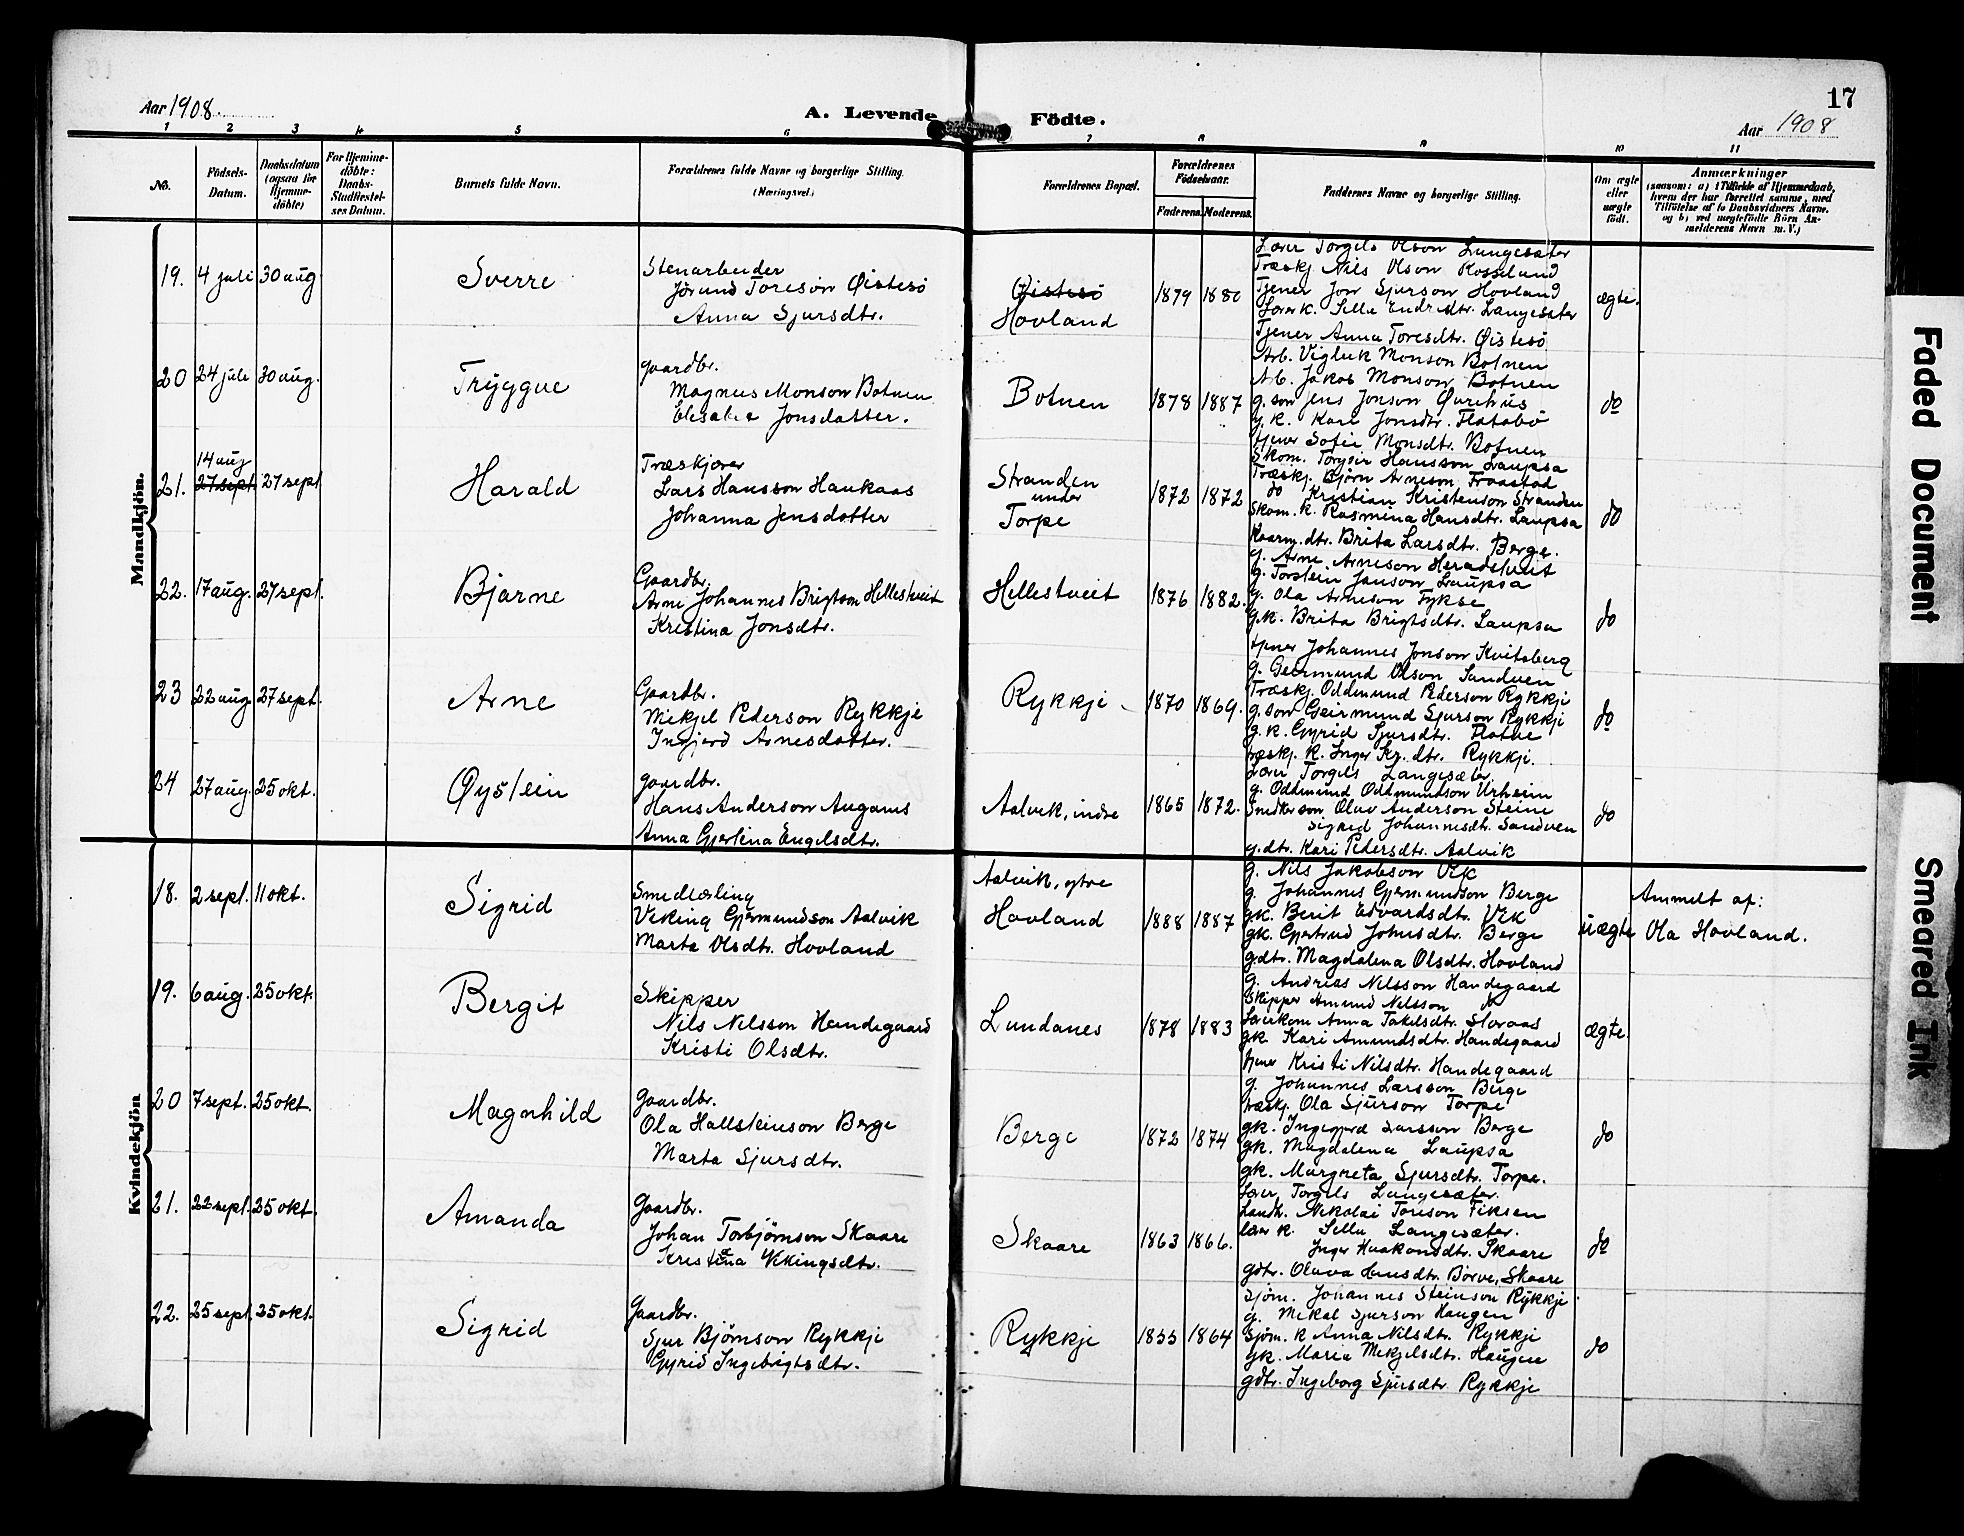 Aar 1908
A. Levende Födte.
17
Aar 1908
1 2 3 4 5 6 7 8 9 10 11
No.
Födsels-Datum.
Daabsdatum (ogsaa för Hjemme-döbte)
For Hjemme-döbte: Daabs-Stadfæstel-ses Datum.
Barnets fulde Navn.
Forældrenes fulde Navne og borgerlige Stilling. (Næringsvei.)
Forældrenes Bopæl.
Forældrenes Födselsaar.
Faderens. Moderens.
Faddernes Navne og borgerlige Stilling.
Om ægte eller uægte födt.
Anmærkninger
(saasom: a) i Tilfælde af Hjemmedaab,
hvem der har forrettet samme, med
Tilföielse af to Daabsvidners Navne.
og b) ved uægtefödte Börn An-
melderens Navn m. V.)
Mandkjön.
19. 4 juli 30 aug Sverre
Stenarbeider
Jörund Toreson Öistesö
Anna Sjursdtr.
Öistesö
Hovland
1879 1880
Lærer Torgils Olson Langesæter
Træskj. Nils Olson Rosseland
Tjener Jon Sjurson Hovland
Lærerk. Silla Endresdtr. Langesæter
Tjener Anna Toresdtr. Öistesö
ægte.
20 24 juli 30 aug. Tryggve
Gaardbr.
Magnus Monson Botnen
Elisabet Jonsdatter.
Botnen
1878 1887
Arb. Vigleik Monson Botnen
Arb. Jakob Monson Botnen
g. son Jens Jonson Öurehus
g. k. Kari Jonsdtr. Flatabö
tjener Sofie Monsdtr. Botnen
do
21. 14 aug 27 sept. 27 sept Harald
Træskjærer
Lars Hansson Haukaas
Johanna Jensdatter
Stranden
under
Torpe
1872 1872
Skom. Torgeir Hansson Laupsa
Træskj. Björn Arneson Fraastad
do Kristian Kristenson Stranden
Skom. k. Rasmina Hansdtr. Laupsa
Kaarm. dtr. Brita Larsdtr. Berge.
do
22. 17 aug. 27 sept. Bjarne
Gaardbr.
Arne Johannes Brigtson Hellestveit
Kristina Jonsdtr.
Hellestveit
1876 1882.
g. Arne Arneson Heradstveit
g. Torstein Janson Laupsa
g. Ola Arneson Fykse
g.k. Brita Brigtsdtr. Laupsa
tjener Johannes Jonson Kvitaberg
do
23 22 aug 27 sept. Arne
Gaardbr.
Mikjel Pederson Rykkje
Ingjerd Arnesdatter.
Rykkje
1870 1869.
g. Germund Olson Sandven
Træskj. Oddmund Pederson Rykkje
g. son Geirmund Sjurson Rykkje
g. k. Gyrid Sjursdtr. Flotve
træskj. k. Inger Kr. dtr. Rykkje.
do
24 27 aug. 25 okt. Øystein
Gaardbr.
Hans Anderson Augarns
Anna Gjertina Engelsdtr.
Aalvik, indre
1865 1872.
Lærer Torgils Langesæter.
g. Oddmund Oddmundson Urheim
Smedkerson Olav Anderson Steine
Sigrid Johannesdtr. Sandven
g. dtr. Kari Pedersdtr. Aalvik
do
Kvindekjön
18. 2 sept. 11 okt. Sigrid
Smedlærling
Viking Gjermundson Aalvik
Marta Olsdtr. Hovland
Aalvik, ytre
Hovland
1888 1887
g. Nils Jakobson Vik
g. Johannes Gjermundson Berge
gk. Berit Edvardsdtr. Vik
gk. Gjertrud Johnsdtr. Berge
gdtr. Magdalena Olsdtr. Hovland
uægte
Anmelt af:
Ola Hovland.
19. 6 aug. 25 okt. Bergit
Skipper
Nils Nilsson Handegaard
Kristi Olsdtr.
Lundanes
1878 1883
g. Andreas Nilsson Handegaard
Skipper Amund Nilsson do
Anna Takelsdtr. Storaas
gk. Kari Amundsdtr. Handegaard
tjener Kristi Nilsdtr. Handegaard
ægte.
20 7 sept. 25 okt. Magnhild
Gaardbr.
Ola Hallsteinson Berge
Marta Sjursdtr.
Berge
1872 1874
g. Johannes Larsson Berge
træskj. Ola Sjurson Torpe
gk. Ingegjerd Larsson Berge
gk. Magdalena Laupsa
gk. Margreta Sjursdtr. Torpe.
do
21. 22 sept. 25 okt. Amanda
Gaardbr.
Johan Torbjörnson Skaare
Kristina Vikingsdtr.
Skaare
1863 1866.
Lærer Torgils Langesæter.
Landh. Nikolai Toreson Fiksen
lærer k. Silla Langesæter.
Inger Haakonsdtr. Skaare
gdtr. Olava Hansdtr. Börve, Skaare
do
22. 25 sept 25 okt. Sigrid
Gaardbr.
Sjur Björnson Rykkje
Gyrid Ingebrigtsdtr.
Rykkje
1855 1864
Sjöm. Johannes Steinson Rykkje
g. Mikal Sjurson Haugen
Sjöm. k Anna Nilsdtr. Rykkje
gk. Maria Mikjelsdtr. Haugen
gdtr. Ingeborg Sjursdtr Rykkje
do
Faded Document
Smeared Ink